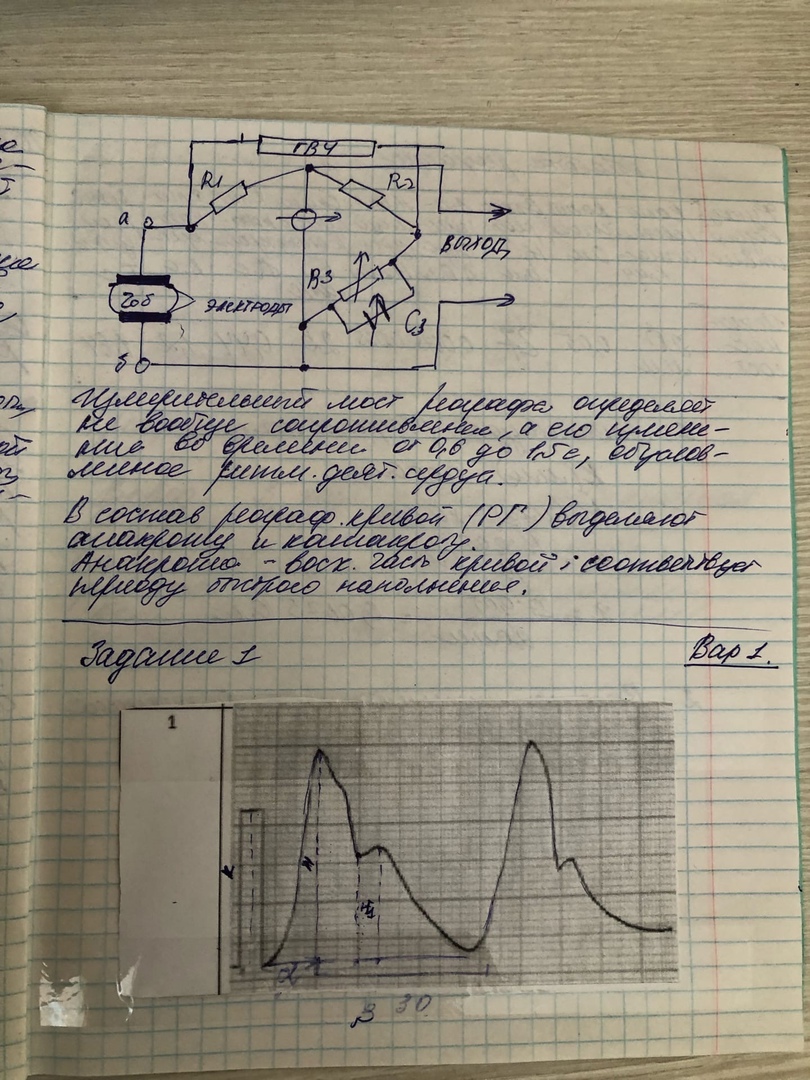 ГВЧ
R1
R2
а
ВЫХОД
R3
Zоб
ЭЛЕКТРОДЫ
C3
б
Измерительный мост реографа определяет
не вообще сопротивление, а его измене-
ние во времени от 0,6 до 1,5с, обуслов-
ленное ритм. деят. сердца.
В состав реограф. кривой (РГ) выделяют
анакроту и катакроту.
Анакрота - восх. часть кривой; соответствует
периоду быстрого наполнения.
Задание 1
Вар 1.
1
K
H
H1
α
β 30